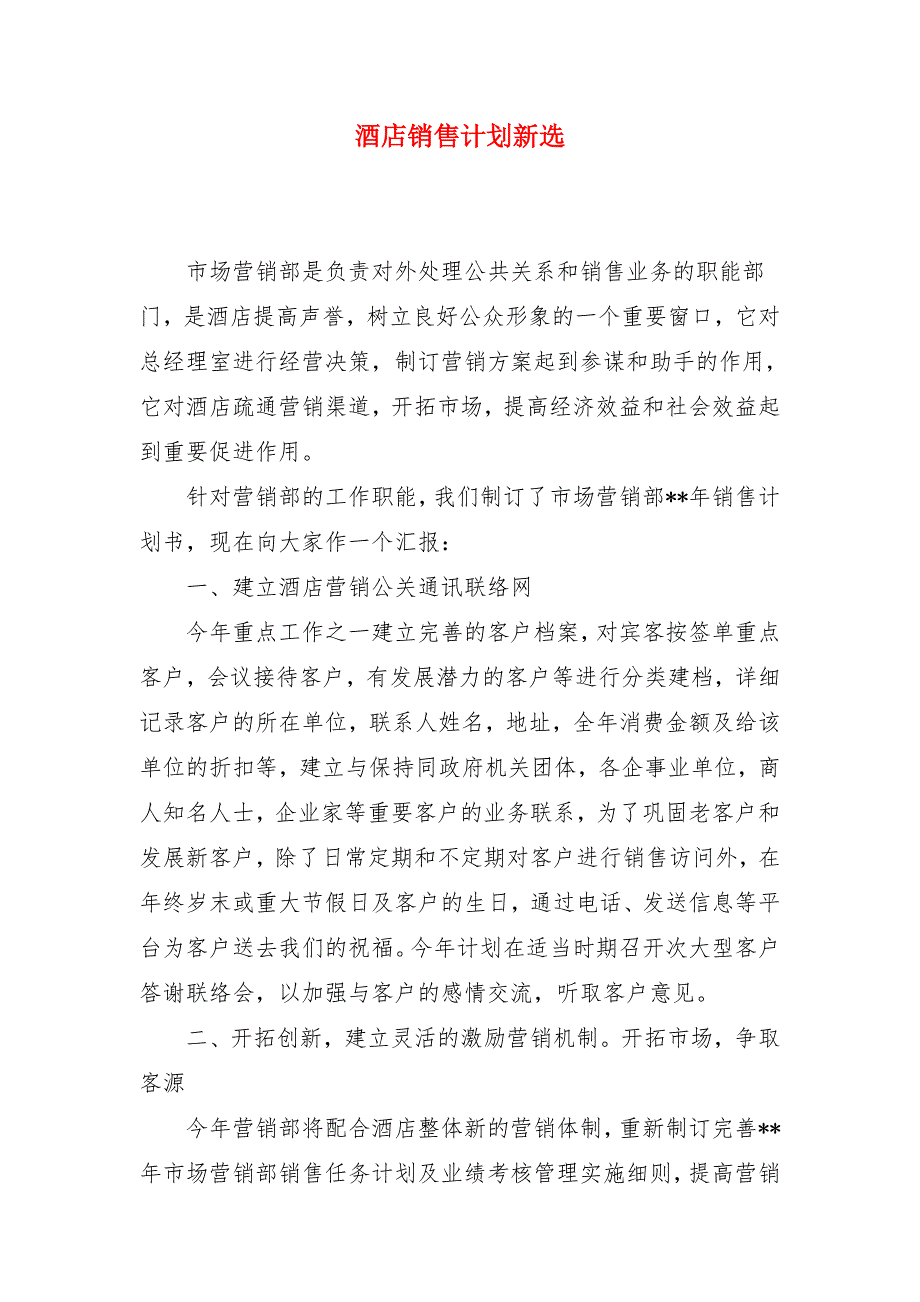 酒店销售计划新选
市场营销部是负责对外处理公共关系和销售业务的职能部
门，是酒店提高声誉，树立良好公众形象的一个重要窗口，它对
总经理室进行经营决策，制订营销方案起到参谋和助手的作用，
它对酒店疏通营销渠道，开拓市场，提高经济效益和社会效益起
到重要促进作用。
针对营销部的工作职能，我们制订了市场营销部**年销售计
划书，现在向大家作一个汇报：
一、建立酒店营销公关通讯联络网
今年重点工作之一建立完善的客户档案，对宾客按签单重点
客户，会议接待客户，有发展潜力的客户等进行分类建档，详细
记录客户的所在单位，联系人姓名，地址，全年消费金额及给该
单位的折扣等，建立与保持同政府机关团体，各企事业单位，商
人知名人士，企业家等重要客户的业务联系，为了巩固老客户和
发展新客户，除了日常定期和不定期对客户进行销售访问外，在
年终岁末或重大节假日及客户的生日，通过电话、发送信息等平
台为客户送去我们的祝福。今年计划在适当时期召开次大型客户
答谢联络会，以加强与客户的感情交流，听取客户意见。
二、开拓创新，建立灵活的激励营销机制。开拓市场，争取
客源
今年营销部将配合酒店整体新的营销体制，重新制订完善**
年市场营销部销售任务计划及业绩考核管理实施细则，提高营销